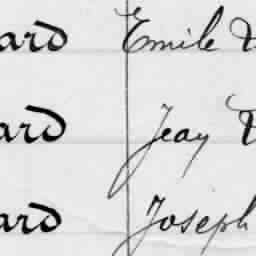 ard Emile D
ard Jean D
ard Joseph